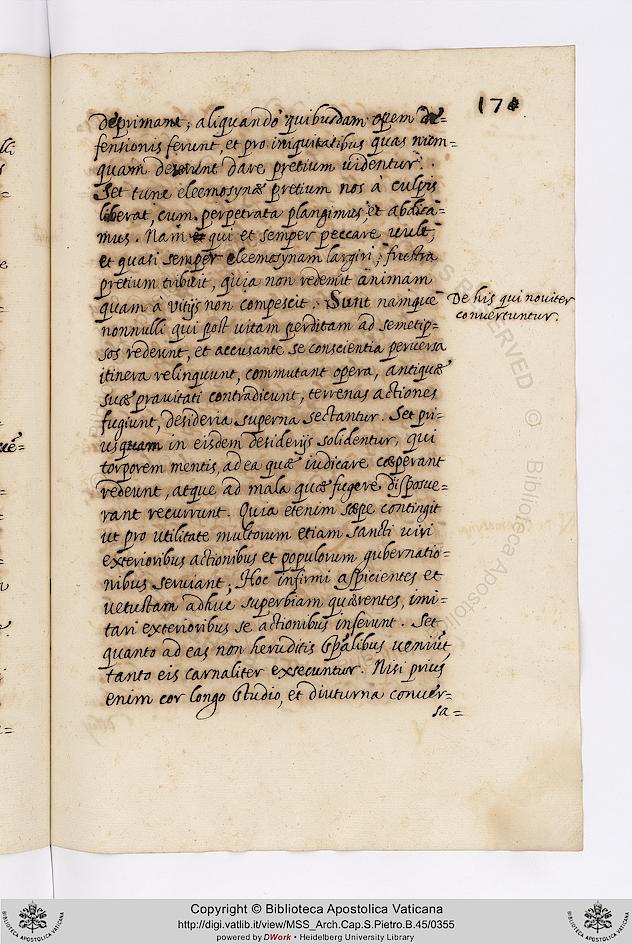 174
deprimant; aliquando quibusdam opem de=
fensionis ferunt, et pro iniquitatibus quas num=
quam deserunt dare pretium uidentur.
Set tunc eleemosynæ pretium nos à culpis
liberat, cum perpetrata plangimus, et abdica=
mus. Nam et qui et semper peccare uult,
et quasi semper eleemosynam largiri; frustra
pretium tribuit, quia non redemit animam
quam à vitijs non compescit: Sunt namque
De his qui nouiter
conuertuntur.
nonnulli qui post uitam perditam ad semetip=
sos redeunt, et accusante se conscientia peruersa
itinera relinquunt, commutant opera, antiquæ
suæ prauitati contradicunt, terrenas actiones
fugiunt, desideria superna sectantur. Set pri=
usquam in eisdem desiderijs solidentur, qui
torporem mentis, ad ea quæ iudicare cœperant
redeunt, atque ad mala quæ fugere disposue=
rant recurrunt. Quia etenim sæpe contingit
ut pro utilitate multorum etiam sancti uiri
exterioribus actionibus et populorum gubernatio=
nibus seruiant; Hoc infirmi aspicientes et
uetustam adhuc superbiam quærentes, imi=
tari exterioribus se actionibus inserunt. Set
quanto ad eas non heruditis spalibus ueniut,
tanto eis carnaliter exsecuntur. Nisi prius
enim cor longo studio, et diuturna conuer=
sa=
© Biblioteca Apostolica
RESERVED
Copyright © Biblioteca Apostolica Vaticana
http://digi.vatlib.it/view/MSS_Arch.Cap.S.Pietro.B.45/0355
powered by DWork • Heidelberg University Library